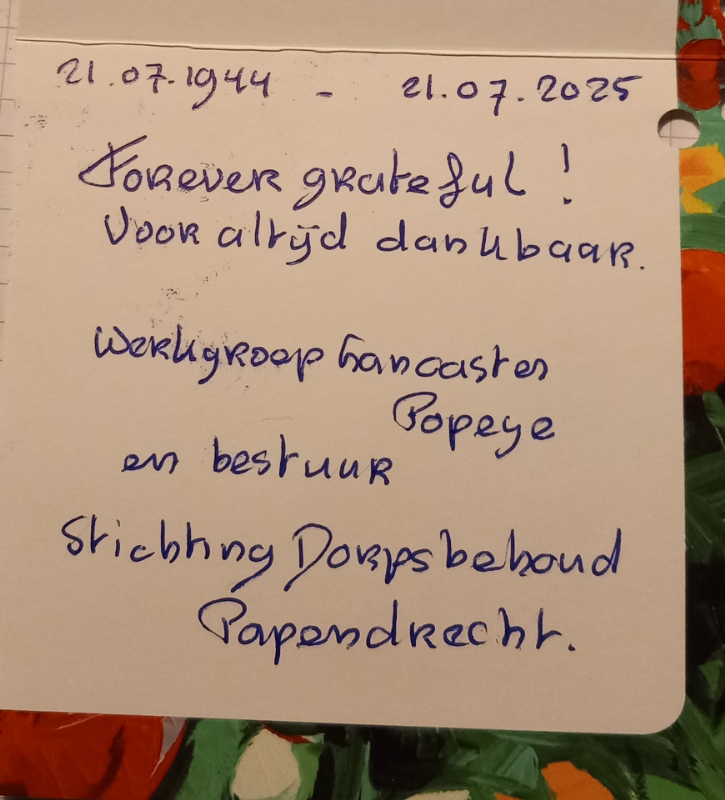 21.07.1944 - 21.07.2025
Forever grateful!
Voor altijd dankbaar.
Werkgroep Lancaster
Popeye
en bestuur
Stichting Dorpsbehoud
Papendrecht.